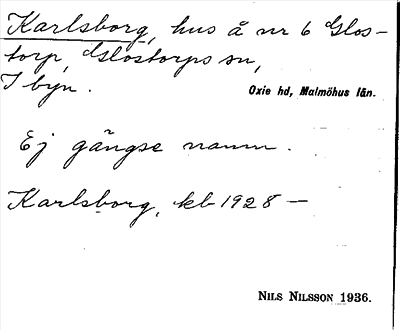 Karlsborg, hus å nr 6 Glos-
torp, Glostorps sn,
I byn.
Oxie hd, Malmöhus län.
Ej gängse namn.
Karlsborg, kb 1928 —
NILS NILSSON 1936.